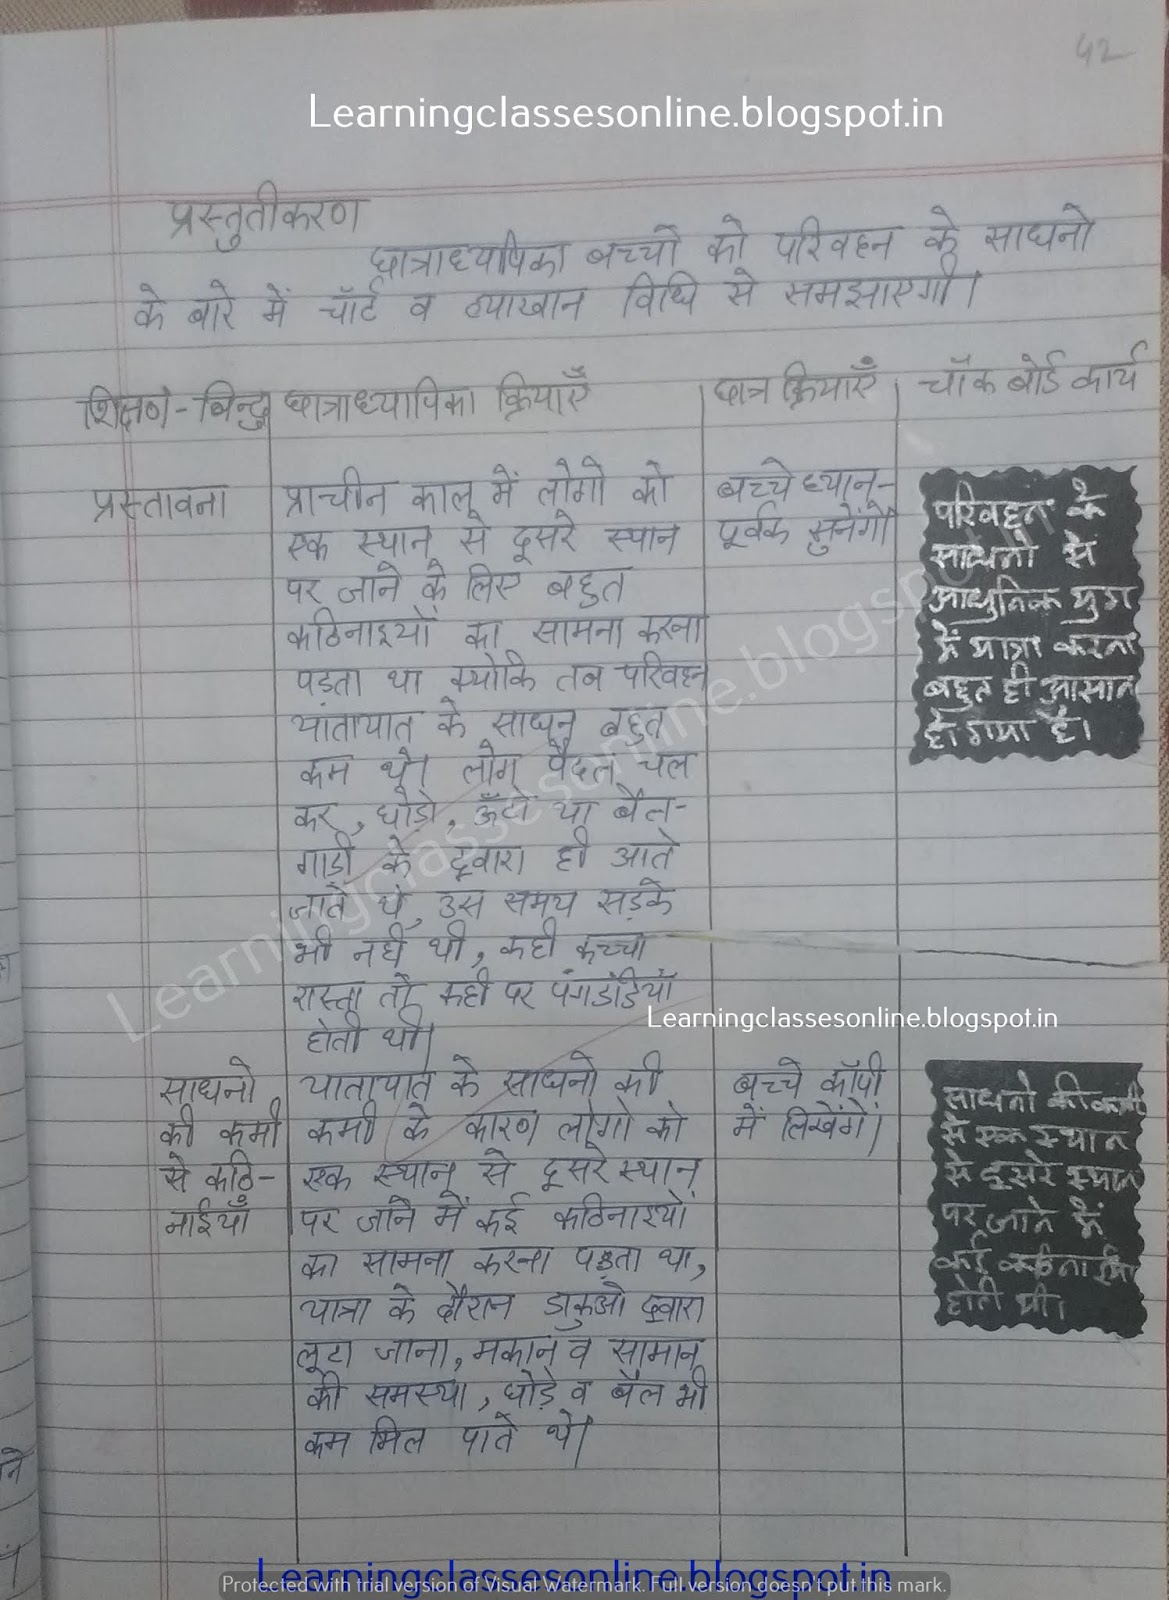 42
Learningclassesonline.blogspot.in
प्रस्तुतीकरण
छात्राध्यापिका बच्चो को परिवहन के साधनो
के बारे में चॉर्ट व व्याखान विधि से समझाएगी।
शिक्षण-बिन्दु
छात्राध्यापिका क्रियाएँ
छात्र क्रियाएँ
चॉक बोर्ड कार्य
प्रस्तावना
प्राचीन काल में लोगो को
एक स्थान से दूसरे स्थान
पर जाने के लिए बहुत
कठिनाइयों का सामना करना
पड़ता था क्योकि तब परिवहन
यातायात के साधन बहुत
कम थे। लोग पैदल चल
कर, घोडो, ऊँटो या बैल-
गाडी के द्वारा ही आते
जाते थे, उस समय सड़के
भी नही थी, कही कच्चा
रास्ता तो कही पर पंगडंडियाँ
होती थी।
बच्चे ध्यान-
पूर्वक सुनेंगे।
परिवहन के
साधनो से
आधुनिक युग
में यात्रा करना
बहुत ही आसान
हो गया है।
Learningclassesonline.blogspot.in
Learningclassesonline.blogspot.in
साधनो
की कमी
से कठि-
नाईयाँ
यातायात के साधनो की
कमी के कारण लोगो को
एक स्थान से दूसरे स्थान
पर जाने में कई कठिनाइयो
का सामना करना पड़ता था,
यात्रा के दौरान डाकुओ द्वारा
लूटा जाना, मकान व सामान
की समस्या, घोड़े व बैल भी
कम मिल पाते थे।
बच्चे कॉपी
में लिखेंगें।
साधनो की कमी
से एक स्थान
से दूसरे स्थान
पर जाने में
कई कठिनाईया
होती थी।
Learningclassesonline.blogspot.in
Protected with trial version of Visual Watermark. Full version doesn't put this mark.